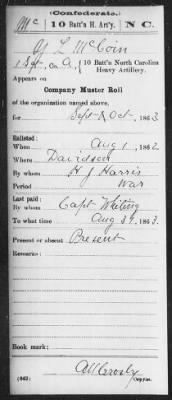 (Confederate.)
Mc 10 Batt'n H. Art'y. N C.
L McCoin
1 Sgt, Co. A, 10 Batt'n North Carolina
Heavy Artillery.
Appears on
Company Muster Roll
of the organization named above,
for Sept & Oct, 1863
Enlisted:
When Aug 1, 1862
Where Davidson
By whom H J Harris
Period War
Last paid:
By whom Capt Whiting
To what time Aug 31, 1863.
Present or absent Present
Remarks:
Book mark:
Crosby
(642) Copyist.